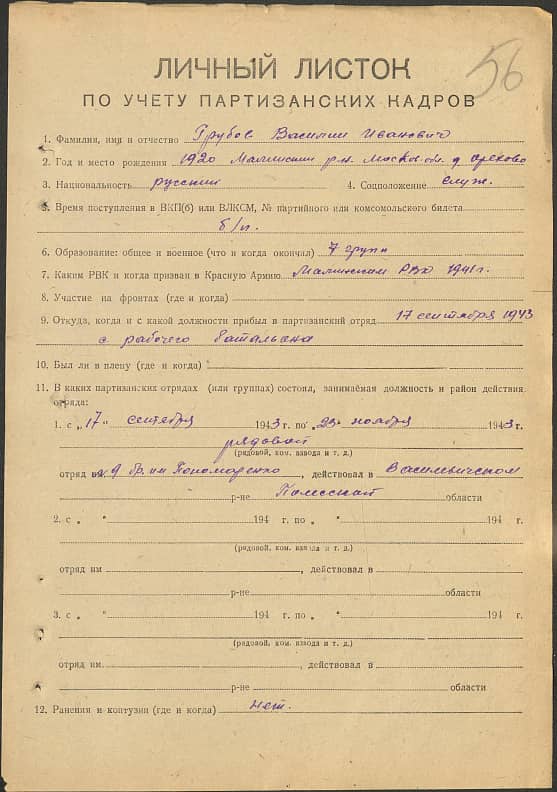 56
ЛИЧНЫЙ ЛИСТОК
ПО УЧЕТУ ПАРТИЗАНСКИХ КАДРОВ
1. Фамилия, имя и отчество Грубов Василий Иванович
2. Год и место рождения 1920 Малинский р-н. Москов. обл. д. Орехово
3. Национальность русский 4. Соцположение служ.
5. Время поступления в ВКП(б) или ВЛКСМ, № партийного или комсомольского билета
б/п.
6. Образование: общее и военное (что и когда окончил) 7 групп
7. Каким РВК и когда призван в Красную Армию Малинским РВК 1941 г.
8. Участие на фронтах (где и когда)
9. Откуда, когда и с какой должности прибыл в партизанский отряд 17 сентября 1943
с рабочего батальона
10. Был ли в плену (где и когда)
11. В каких партизанских отрядах (или группах) состоял, занимаемая должность и район действия
отряда:
1. с „17" сентября 1943 г. по „ " ноября 1943 г.
рядовой
(рядовой, ком. взвода и т. д.)
отряд бр. им Пономаренко, действовал в
р-не Полесской области
2. с „ " 194 г. по „ " 194 г.
(рядовой, ком. взвода и т. д.)
отряд им , действовал в
р-не области
3. с „ " 194 г. по „ " 194 г.
(рядовой, ком. взвода и т. д.)
отряд им , действовал в
р-не области
12. Ранения и контузии (где и когда) нет.